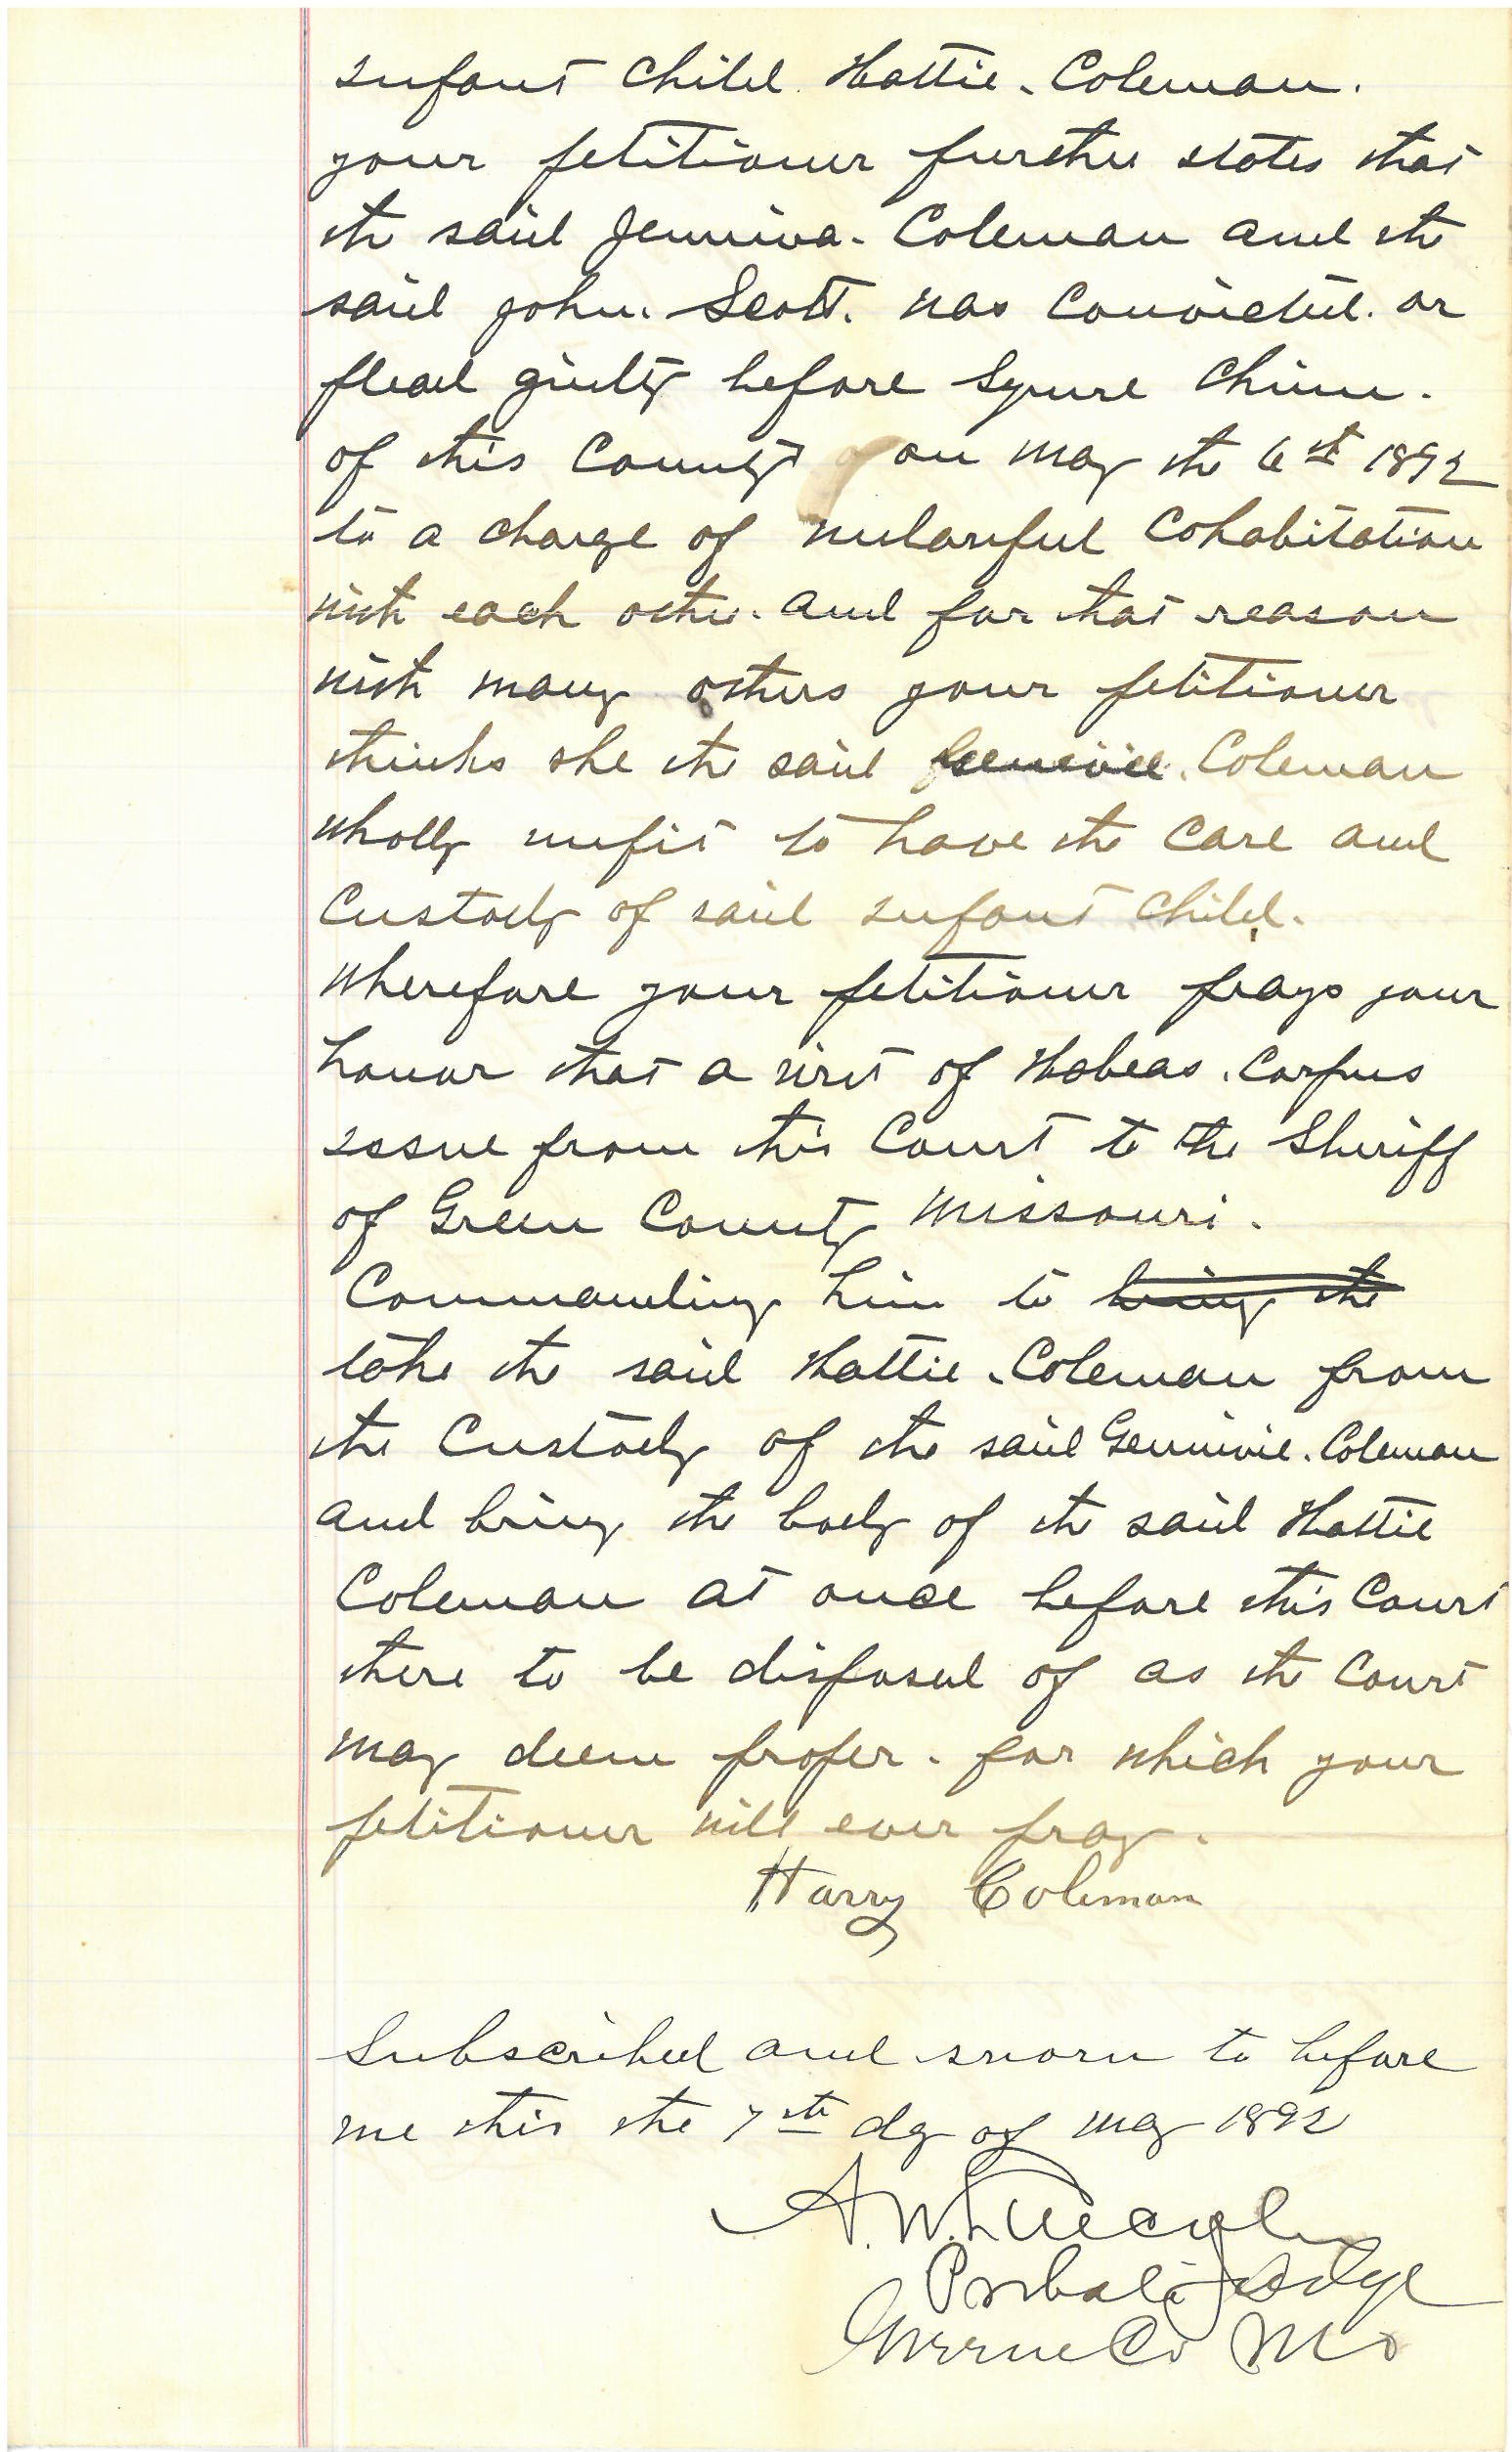 infant child Hattie. Coleman.
your petitioner further states that
the said Jenniva. Coleman and the
said John. Scott. was convicted. or
plead guilty before Squire Chinn.
of this County on May the 6th 1892
to a charge of unlawful Cohabitation
with each other. and for that reason
with many others your petitioner
thinks she the said Coleman
wholly unfit to have the care and
Custody of said infant child.
Wherefore your petitioner prays your
honor that a writ of Habeas. Corpus
issue from this Court to the Sheriff
of Green County Missouri.
Commanding him to bring the
take the said Hattie. Coleman from
the Custody of the said Gennivie. Coleman
and bring the body of the said Hattie
Coleman at once before this Court
there to be disposed of as the Court
may deem proper. for which your
petitioner will ever pray.
Harry Coleman
Subscribed and sworn to before
me this the 7th day of May 1892
A. W. Lincoln
Probate Judge
Greene Co Mo